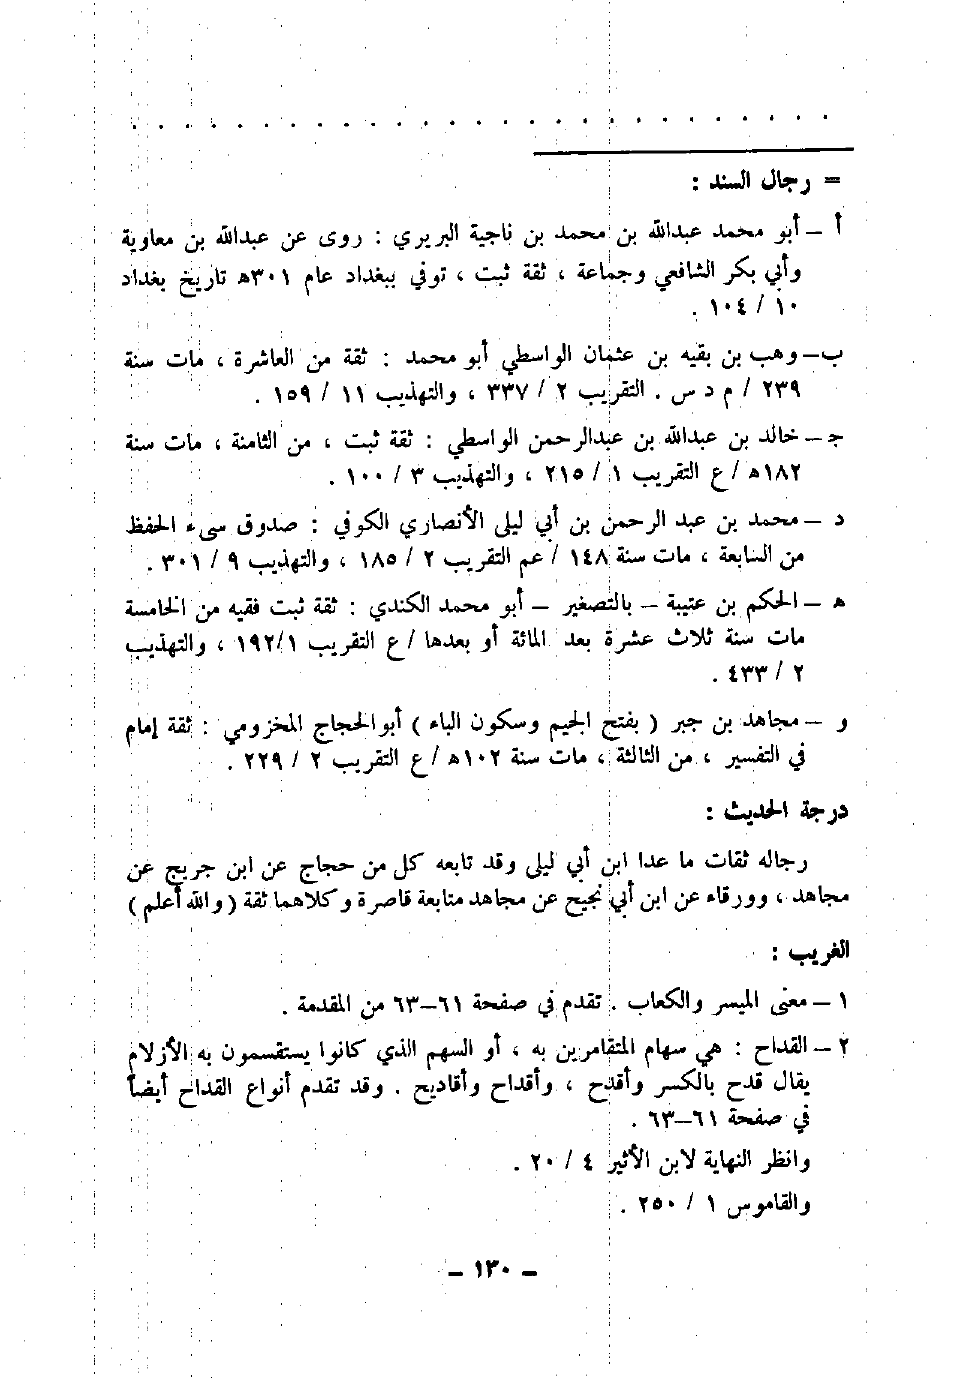 . . . . . . . . . . . . . . . . . . . . . . . . . . .
= رجال السند :
أ – أبو محمد عبدالله بن محمد بن ناجية البربري : روى عن عبدالله بن معاوية
وأبي بكر الشافعي وجماعة ، ثقة ثبت ، توفي ببغداد عام ٣٠١ه تاريخ بغداد
١٠ / ١٠٤ .
ب– وهب بن بقيه بن عثمان الواسطي أبو محمد : ثقة من العاشرة ، مات سنة
٢٣٩ / م د س . التقريب ٢ / ٣٣٧ ، والتهذيب ١١ / ١٥٩ .
ج – خالد بن عبدالله بن عبدالرحمن الواسطي : ثقة ثبت ، من الثامنة ، مات سنة
١٨٢ه / ع التقريب ١ / ٢١٥ ، والتهذيب ٣ / ١٠٠ .
د – محمد بن عبد الرحمن بن أبي ليلى الأنصاري الكوفي : صدوق سىء الحفظ
من السابعة ، مات سنة ١٤٨ / عم التقريب ٢ / ١٨٥ ، والتهذيب ٩ / ٣٠١ .
ه – الحكم بن عتيبة – بالتصغير – أبو محمد الكندي : ثقة ثبت فقيه من الخامسة
مات سنة ثلاث عشرة بعد المائة أو بعدها / ع التقريب ١٩٢/١ ، والتهذيب
٢ / ٤٣٣ .
و – مجاهد بن جبر ( بفتح الجيم وسكون الباء ) أبوالحجاج المخزومي : ثقة إمام
في التفسير ، من الثالثة ، مات سنة ١٠٢ه / ع التقريب ٢ / ٢٢٩ .
درجة الحديث :
رجاله ثقات ما عدا ابن أبي ليلى وقد تابعه كل من حجاج عن ابن جريج عن
مجاهد ، وورقاء عن ابن أبي نجيح عن مجاهد متابعة قاصرة وكلاهما ثقة ( والله أعلم )
الغريب :
١ – معنى الميسر والكعاب . تقدم في صفحة ٦١–٦٣ من المقدمة .
٢ – القداح : هي سهام المتقامرين به ، أو السهم الذي كانوا يستقسمون به الأزلام
يقال قدح بالكسر وأقدح ، وأقداح وأقاديح . وقد تقدم أنواع القداح أيضاً
في صفحة ٦١–٦٣ .
وانظر النهاية لابن الأثير ٤ / ٢٠ .
والقاموس ١ / ٢٥٠ .
– ١٣٠ –